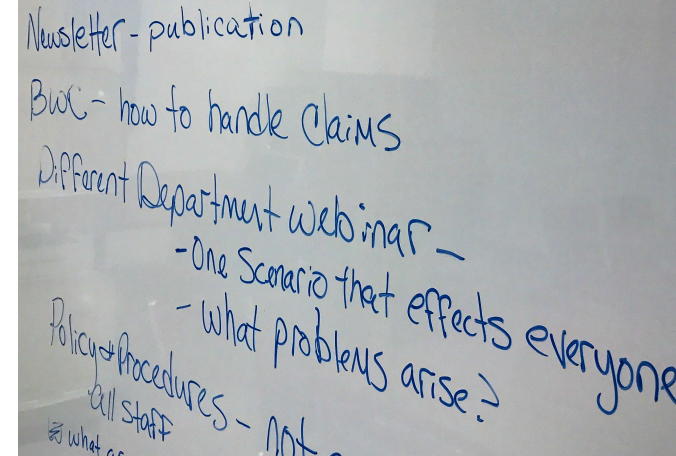 Newsletter - publication
BWC - how to handle Claims
Different Department webinar -
- One Scenario that effects everyone
- what problems arise?
Policy & Procedures - not
all staff
what